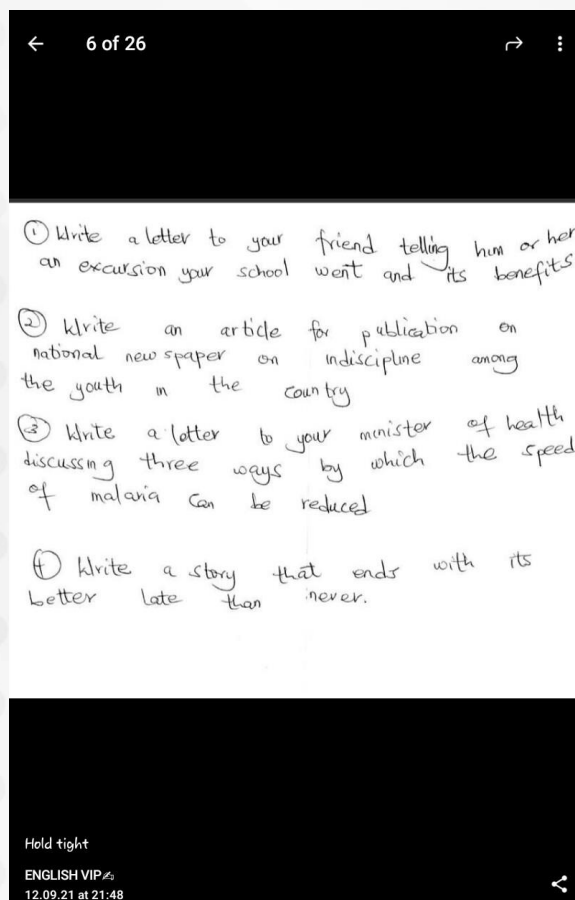 6 of 26
① Write a letter to your friend telling him or her
an excursion your school went and its benefits
② Write an article for publication on
national newspaper on indiscipline among
the youth in the country
③ Write a letter to your minister of health
discussing three ways by which the speed
of malaria can be reduced
④ Write a story that ends with its
better late than never.
Hold tight
ENGLISH VIP✍
12.09.21 at 21:48